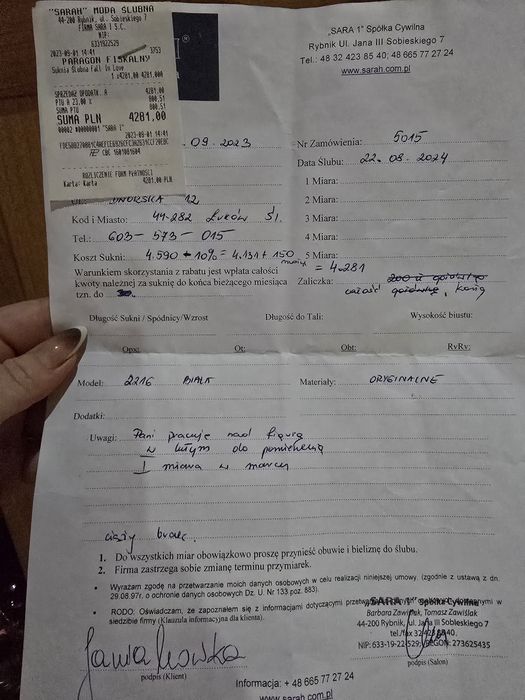 "SARAH" MODA ŚLUBNA
44-200 Rybnik, ul. Sobieskiego 7
FIRMA SARA I S.C.
NIP:
6331922529
2023-09-01 14:41 3753
PARAGON FISKALNY
Suknia Ślubna Fall in Love
1 x4281,00 4281,00A
SPRZEDAŻ OPODATK. A 4281,00
PTU A 23,00 % 800,51
SUMA PTU 800,51
SUMA PLN 4281,00
2023-09-01 14:41
ROZLICZENIE FORM PŁATNOŚCI
Karta: Karta 4281,00 PLN
„SARA 1" Spółka Cywilna
Rybnik Ul. Jana III Sobieskiego 7
Tel.: 48 32 423 85 40; 48 665 77 27 24
www.sarah.com.pl
.09.2023
Nr Zamówienia: 5015
Data Ślubu: 22.08.2024
1 Miara:
DWORSKA 12
2 Miara:
Kod i Miasto: 44-282 Łuków Śl.
3 Miara:
Tel.: 603-573-015
4 Miara:
Koszt Sukni: 4.590 - 10% = 4.131 + 150
5 Miara:
= 4.281
Warunkiem skorzystania z rabatu jest wpłata całości
kwoty należnej za suknię do końca bieżącego miesiąca
tzn. do
Zaliczka:
całość gotówkę,
Długość Sukni / Spódnicy/Wzrost Długość do Tali: Wysokość biustu:
Opx: Ot: Obt: RvRv:
Model: 2216 BIAŁA
Materiały: ORYGINALNE
Dodatki:
Uwagi: Pani pracuje nad figurą
I miara w marcu
1. Do wszystkich miar obowiązkowo proszę przynieść obuwie i bieliznę do ślubu.
2. Firma zastrzega sobie zmianę terminu przymiarek.
• Wyrażam zgodę na przetwarzanie moich danych osobowych w celu realizacji niniejszej umowy. (zgodnie z ustawą z dn. 29.08.97r. o ochronie danych osobowych Dz. U. Nr 133 poz. 883).
• RODO: Oświadczam, że zapoznałem się z informacjami dotyczącymi
siedzibie firmy (Klauzula informacyjna dla klienta).
SARA 1" Spółka Cywilna
Barbara Zawiślak, Tomasz Zawiślak
44-200 Rybnik, ul. Jana III Sobieskiego 7
NIP: 633-19-22-529; REGON: 273625435
podpis (Klient)
podpis (Salon)
Informacja: + 48 665 77 27 24
www.sarah.com.pl